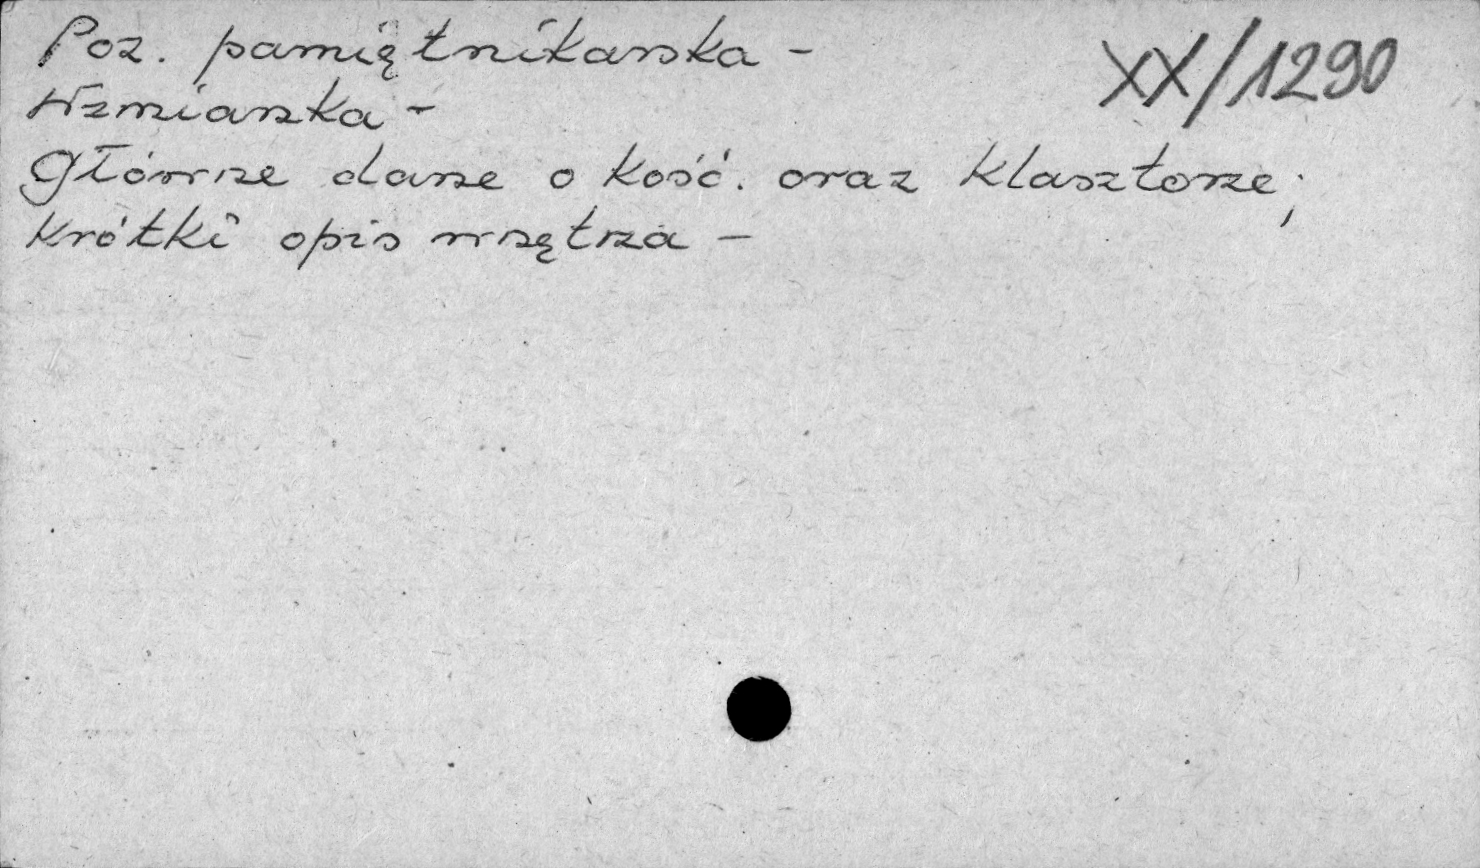 Poz. pamiętnikarska -
XX/1290
Wzmianka -
Główne dane o kość. oraz klasztorze;
krótki opis wnętrza -